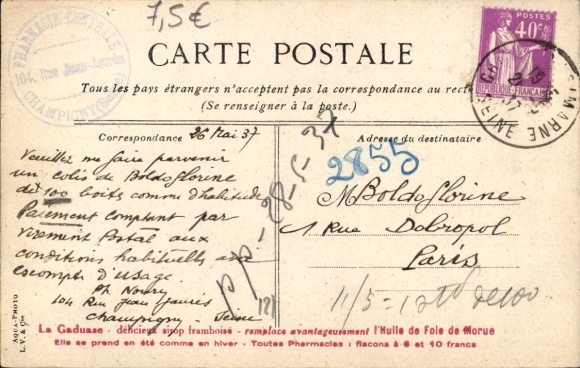 7,5€
PHARMACIE CENTRALE
104, Rue Jean-Jaurès
CHAMPIGNY (Seine)
POSTES
40c
REPUBLIQUE FRANÇAISE
MARNE
SEINE
CARTE POSTALE
Tous les pays étrangers n'acceptent pas la correspondance au rect
(Se renseigner à la poste.)
Correspondance 26 Mai 37
Veuillez me faire parvenir
un colis de Boldoflorine
de 100 boits comme d'habitude
Paiement comptant par
virement Postal aux
conditions habituelles
escompte d'usage.
Ph Noury
104 Rue Jean Jaurès
Champigny Seine
28-5-37
121
Adresse du destinataire
2855
M Boldoflorine
1 Rue Dobropol
Paris
11/5 = de 100
AQUA-PHOTO
L. V. & Cie
La Gaduase - délicieux sirop framboisé - remplace avantageusement l'Huile de Foie de Morue
Elle se prend en été comme en hiver - Toutes Pharmacies : flacons à 6 et 10 francs